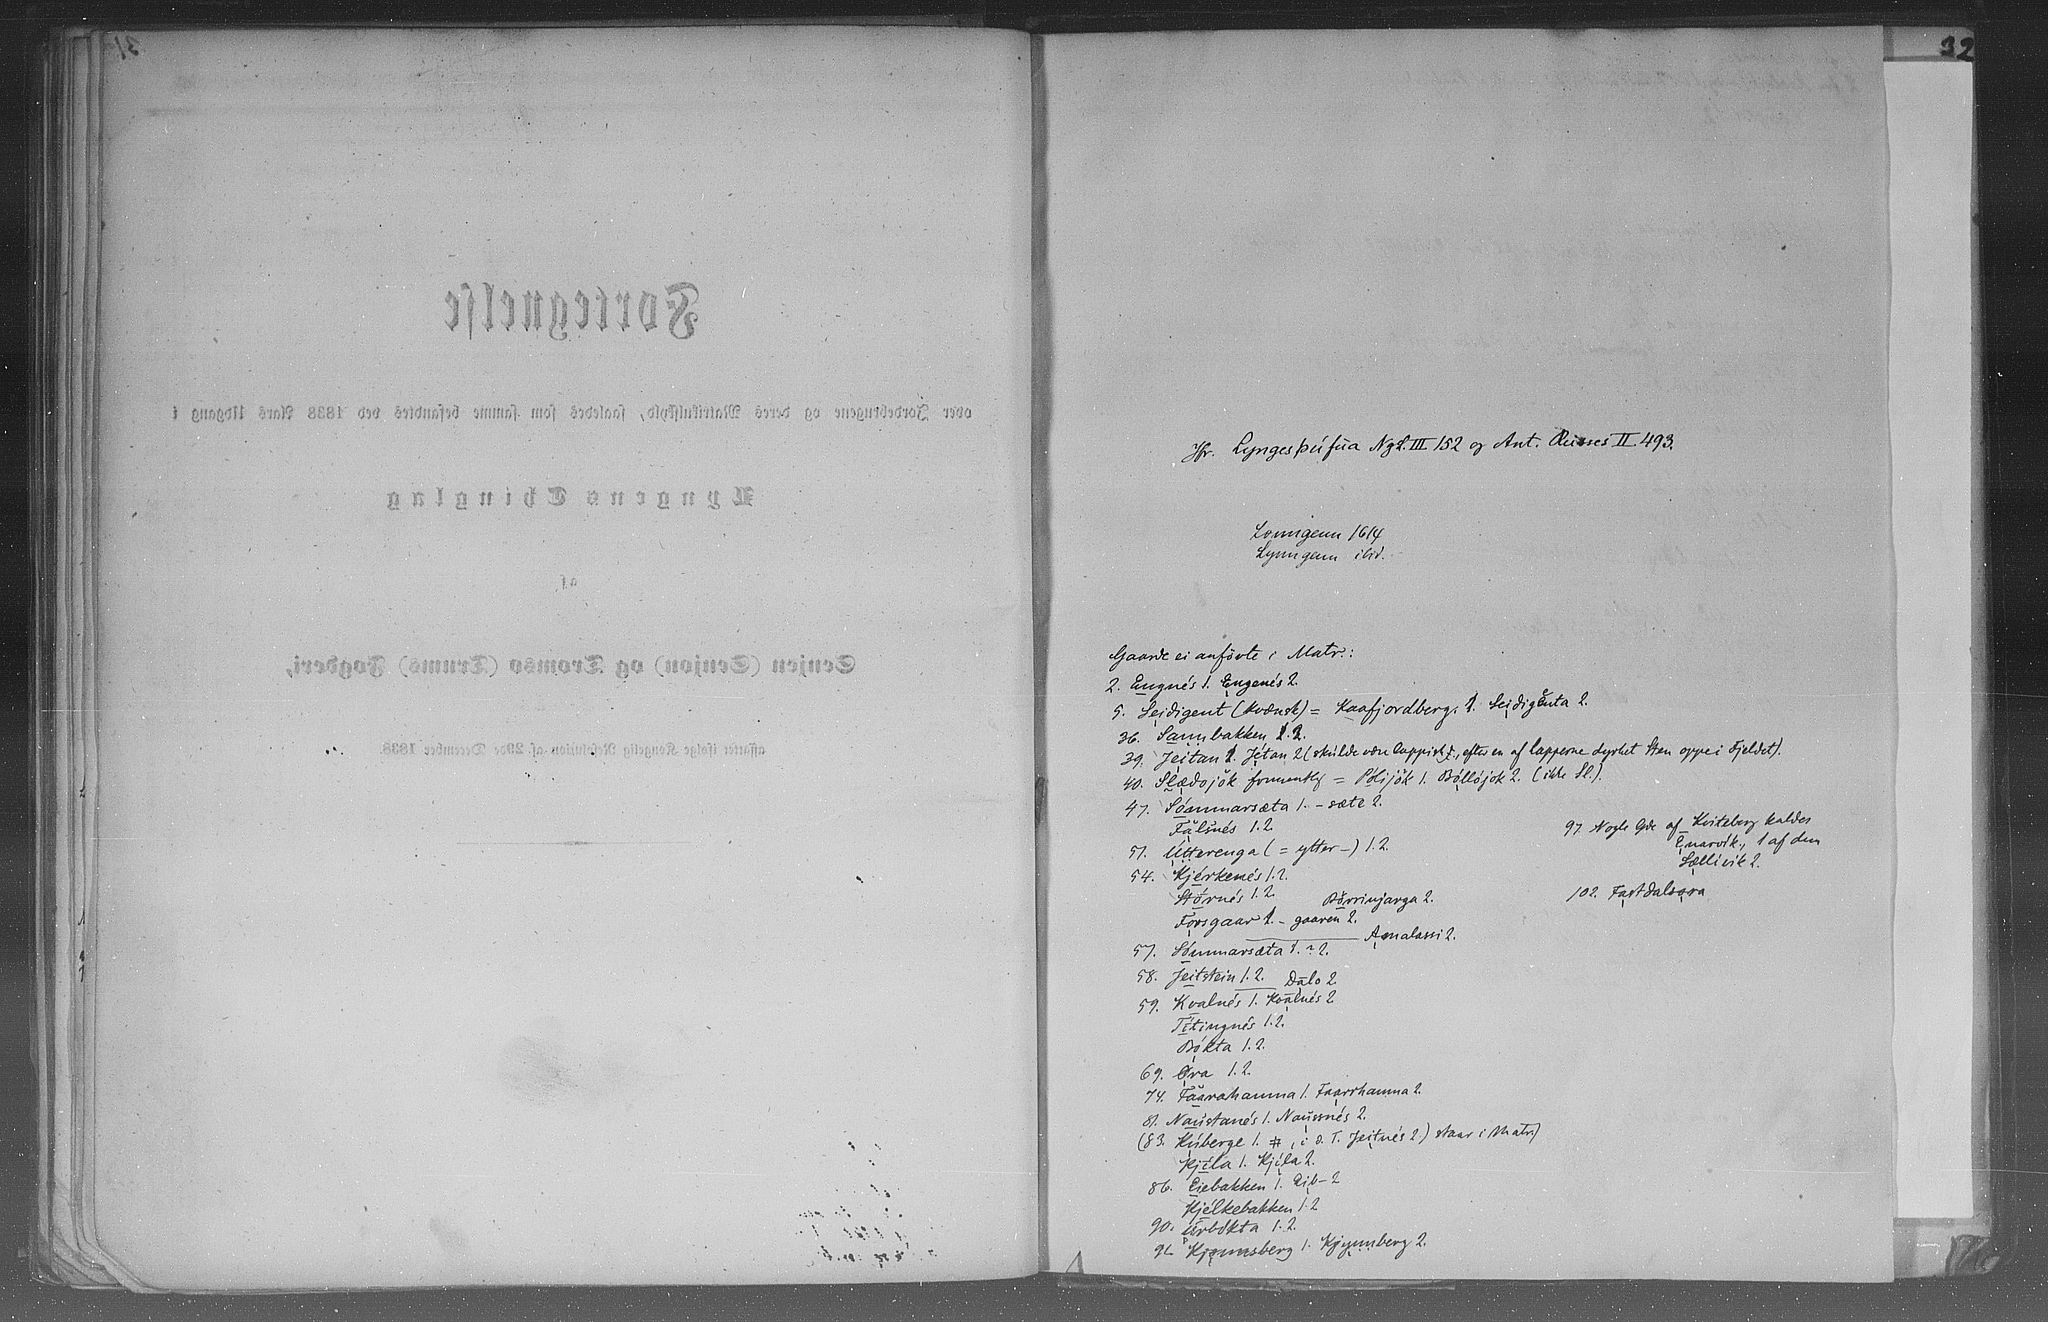 31
Fortegnelse
over Jordebrugene og deres Matrikulskyld, saaledes som samme befandtes ved 1838 Aars Udgang i
Lyngens Thinglag
af
Senjen (Senjon) og Tromsø (Trums) Fogderi,
affattet ifølge Kongelig Resolution af 29de December 1838.
32
Jfr. Lyngesþúfúa NgL. III 152 og Ant. Russes II. 493.
Lonngenn 1614
Lynngenn ibid.
Gaarde ei anførte i Matr.:
2. Engnés 1. Engenés 2.
5. Seidigent (kvænsk) = Kaafjordberg. 1. Seidigenta 2.
36. Sannbakken 1. 2.
39. Jeitan 1. Jétan 2 (skulde være lappisk, efter en af lapperne dyrket Sten oppe i Fjeldet).
40. Slædojòk formentlig = Pòlijòk 1. Bòllòjok 2. (ikke Sl.).
47. Sómmarsæta 1. - sæte 2.
Falsnés 1. 2.
51. Utterenga (= ytter-) 1. 2.
54. Kjérkenés 1. 2.
Stórnés 1. 2. Bòrrinjarga 2.
Forsgaar 1. - gaaren 2.
Amalassi 2.
57. Sómmarsæta 1. 2.
58. Jeitstein 1. 2. Dalo 2
59. Kvalnés 1. Kvalnés 2
Titingnés 1. 2.
Bókta 1. 2.
69. Øra 1. 2.
74. Faarahamna 1. Faarrhamna 2.
81. Naustanés 1. Naussnés 2.
(83. Kúberge 1. #, i d. T. Jeitnés 2) staar i Matr.)
Kjíla 1. Kjíla 2.
86. Eiebakken 1. Eib- 2
Kjélkebakken 1. 2
90. Urbókta 1. 2.
91. Kjønnsberg 1. Kjynnberg 2.
97. Nogle Gde af Kviteberg kaldes
Enarvík, 1 af dem
Sællivik 2.
102. Fastdalsøra